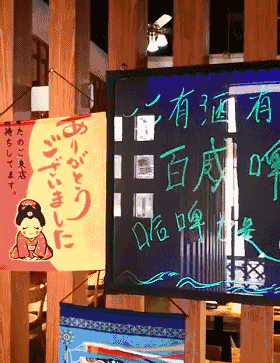 ありがとう
ございました
たのご来店
待ちしてます。
有酒有
百威啤
啤
是